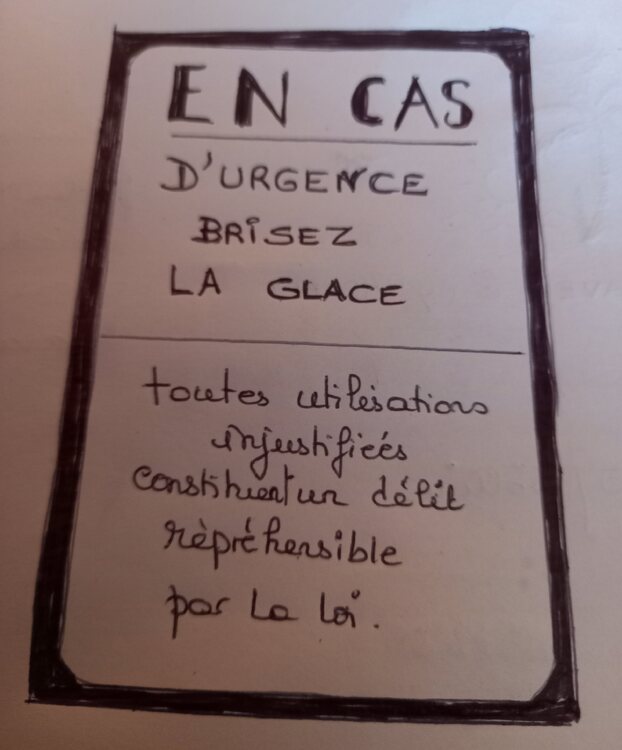 EN CAS
D'URGENCE
BRISEZ
LA GLACE
toutes utilisations
injustifiéés
constituent un délit
rèpréhensible
par la loi.